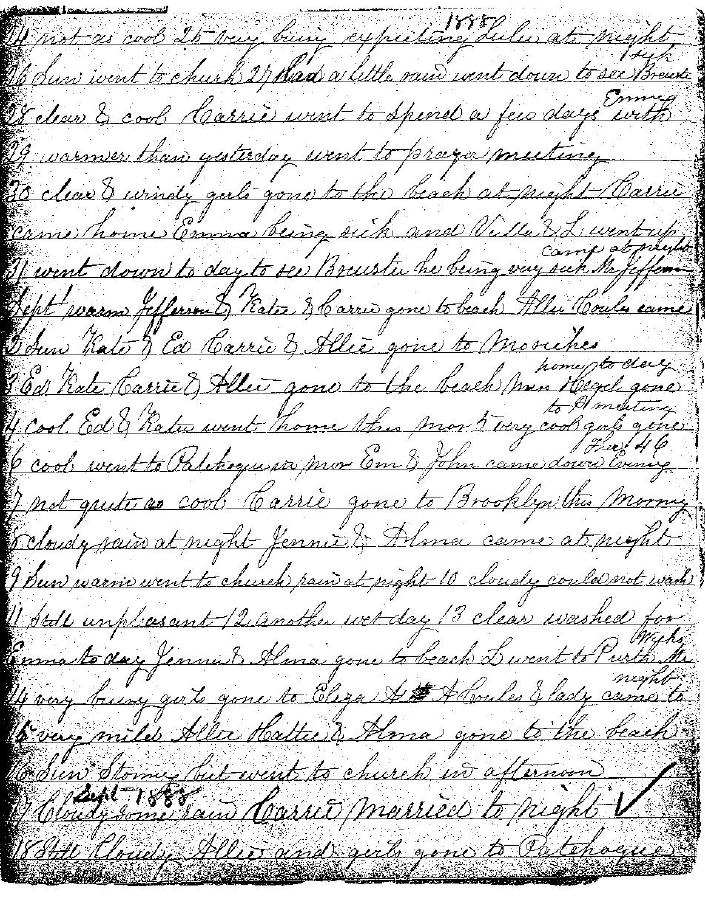 1888
24 not as cool 25 very busy expecting Lulu at night
sick
26 Sun went to church 27 Had a little rain went down to see Brewster
Emma
28 clear & cool Carrie went to spend a few days with
29 warmer than yesterday went to prayer meeting
30 clear & windy girls gone to the beach at night Carrie
came home Emma being sick and Villa & L went up
camp at night
31 went down to day to see Brewster he being very sick Mr Jefferson
Sept 1 warm Jefferson & Kate & Carrie gone to beach Allie Coules came
2 Sun Kate & Ed Carrie & Allie gone to Moriches
home to day
3 Ed Kate Carrie & Allie gone to the beach Mrs Hegel gone
to P meeting
4 cool Ed & Kate went home this mor 5 very cool girls gone
Ther 46
6 cool went to Patchogue in mor Em & John came down Evening
7 not quite as cool Carrie gone to Brooklyn this Morning
8 cloudy rain at night Jennie & Alma came at night
9 Sun warm went to church rain at night 10 cloudy could not wash
11 Still unpleasant 12 another wet day 13 clear washed for
Wicks
Emma to day Jennie & Alma gone to beach L went to Purth Mr
night
14 very busy girls gone to Eliza A Coules & lady came to
15 very mild Allie Hattie & Alma gone to the beach
16 Sun Stormy but went to church in afternoon
Sept 1888
17 Cloudy some rain Carrie Married to night ✓
18 Still Cloudy Allie and girls gone to Patchogue